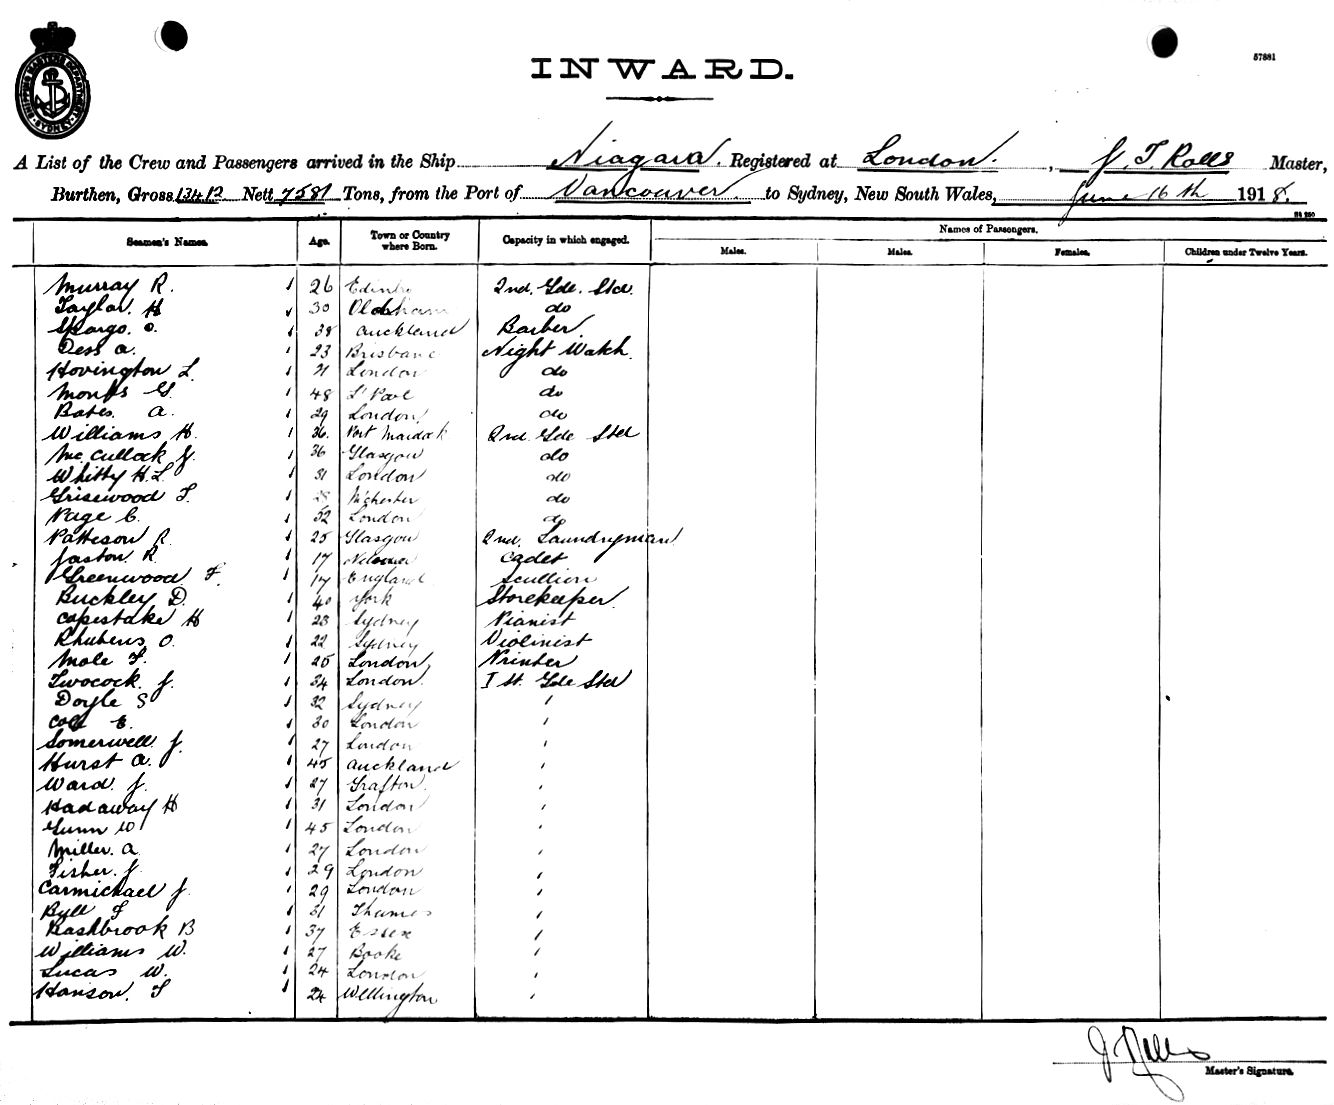 SHIPPING MASTERS DEPARTMENT SYDNEY
57881
INWARD.
A List of the Crew and Passengers arrived in the Ship Niagara. Registered at London. , J. T. Rolls Master,
Burthen, Gross 13412 Nett 7581 Tons, from the Port of Vancouver to Sydney, New South Wales, June 16th 1918.
Seamen's Names. Age. Town or Country where Born. Capacity in which engaged. Names of Passengers.
Males. Males. Females. Children under Twelve Years.
Murray R. 1 26 Edinbro 2nd. Gde. Std.
Taylor. H 1 30 Oldham do
Spargo. O. 1 38 Auckland Barber
Dess A. 1 23 Brisbane Night Watch.
Hovington L. 1 21 London do
Monks G. 1 48 St Paul do
Bates. A. 1 29 London do
Williams H. 1 36. Port Mardock 2nd. Gde Std
McCullock J. 1 36 Glasgow do
Whitty H.L. 1 31 London do
Grisewood T. 1 28 M'chester do
Page C. 1 52 London do
Patteson R. 1 25 Glasgow 2nd. Laundryman
Jaston R. 1 17 Cadet
Greenwood F. 1 17 England Scullion
Buckley D. 1 40 York Storekeeper.
Copestake H 1 23 Sydney Pianist
Rhubens O. 1 22 Sydney Violinist
Mole F. 1 25 London Printer
Twocock J. 1 34 London. 1st. Gde Std
Doyle S 1 32 Sydney "
Cole E. 1 30 London "
Somerwell J. 1 27 London "
Hurst A. 1 45 Auckland "
Ward. J. 1 27 Grafton. "
Hadaway H 1 31 London "
Gunn W 1 45 London "
Miller. A 1 27 London "
Fisher. J. 1 29 London "
Carmichael J. 1 29 London "
Bull F 1 31 Thames "
Bashbrook B 1 37 Essex "
Williams W. 1 27 "
Lucas W. 1 24 London "
Hanson. F 1 24 Wellington "
J Rolls
Master's Signature.